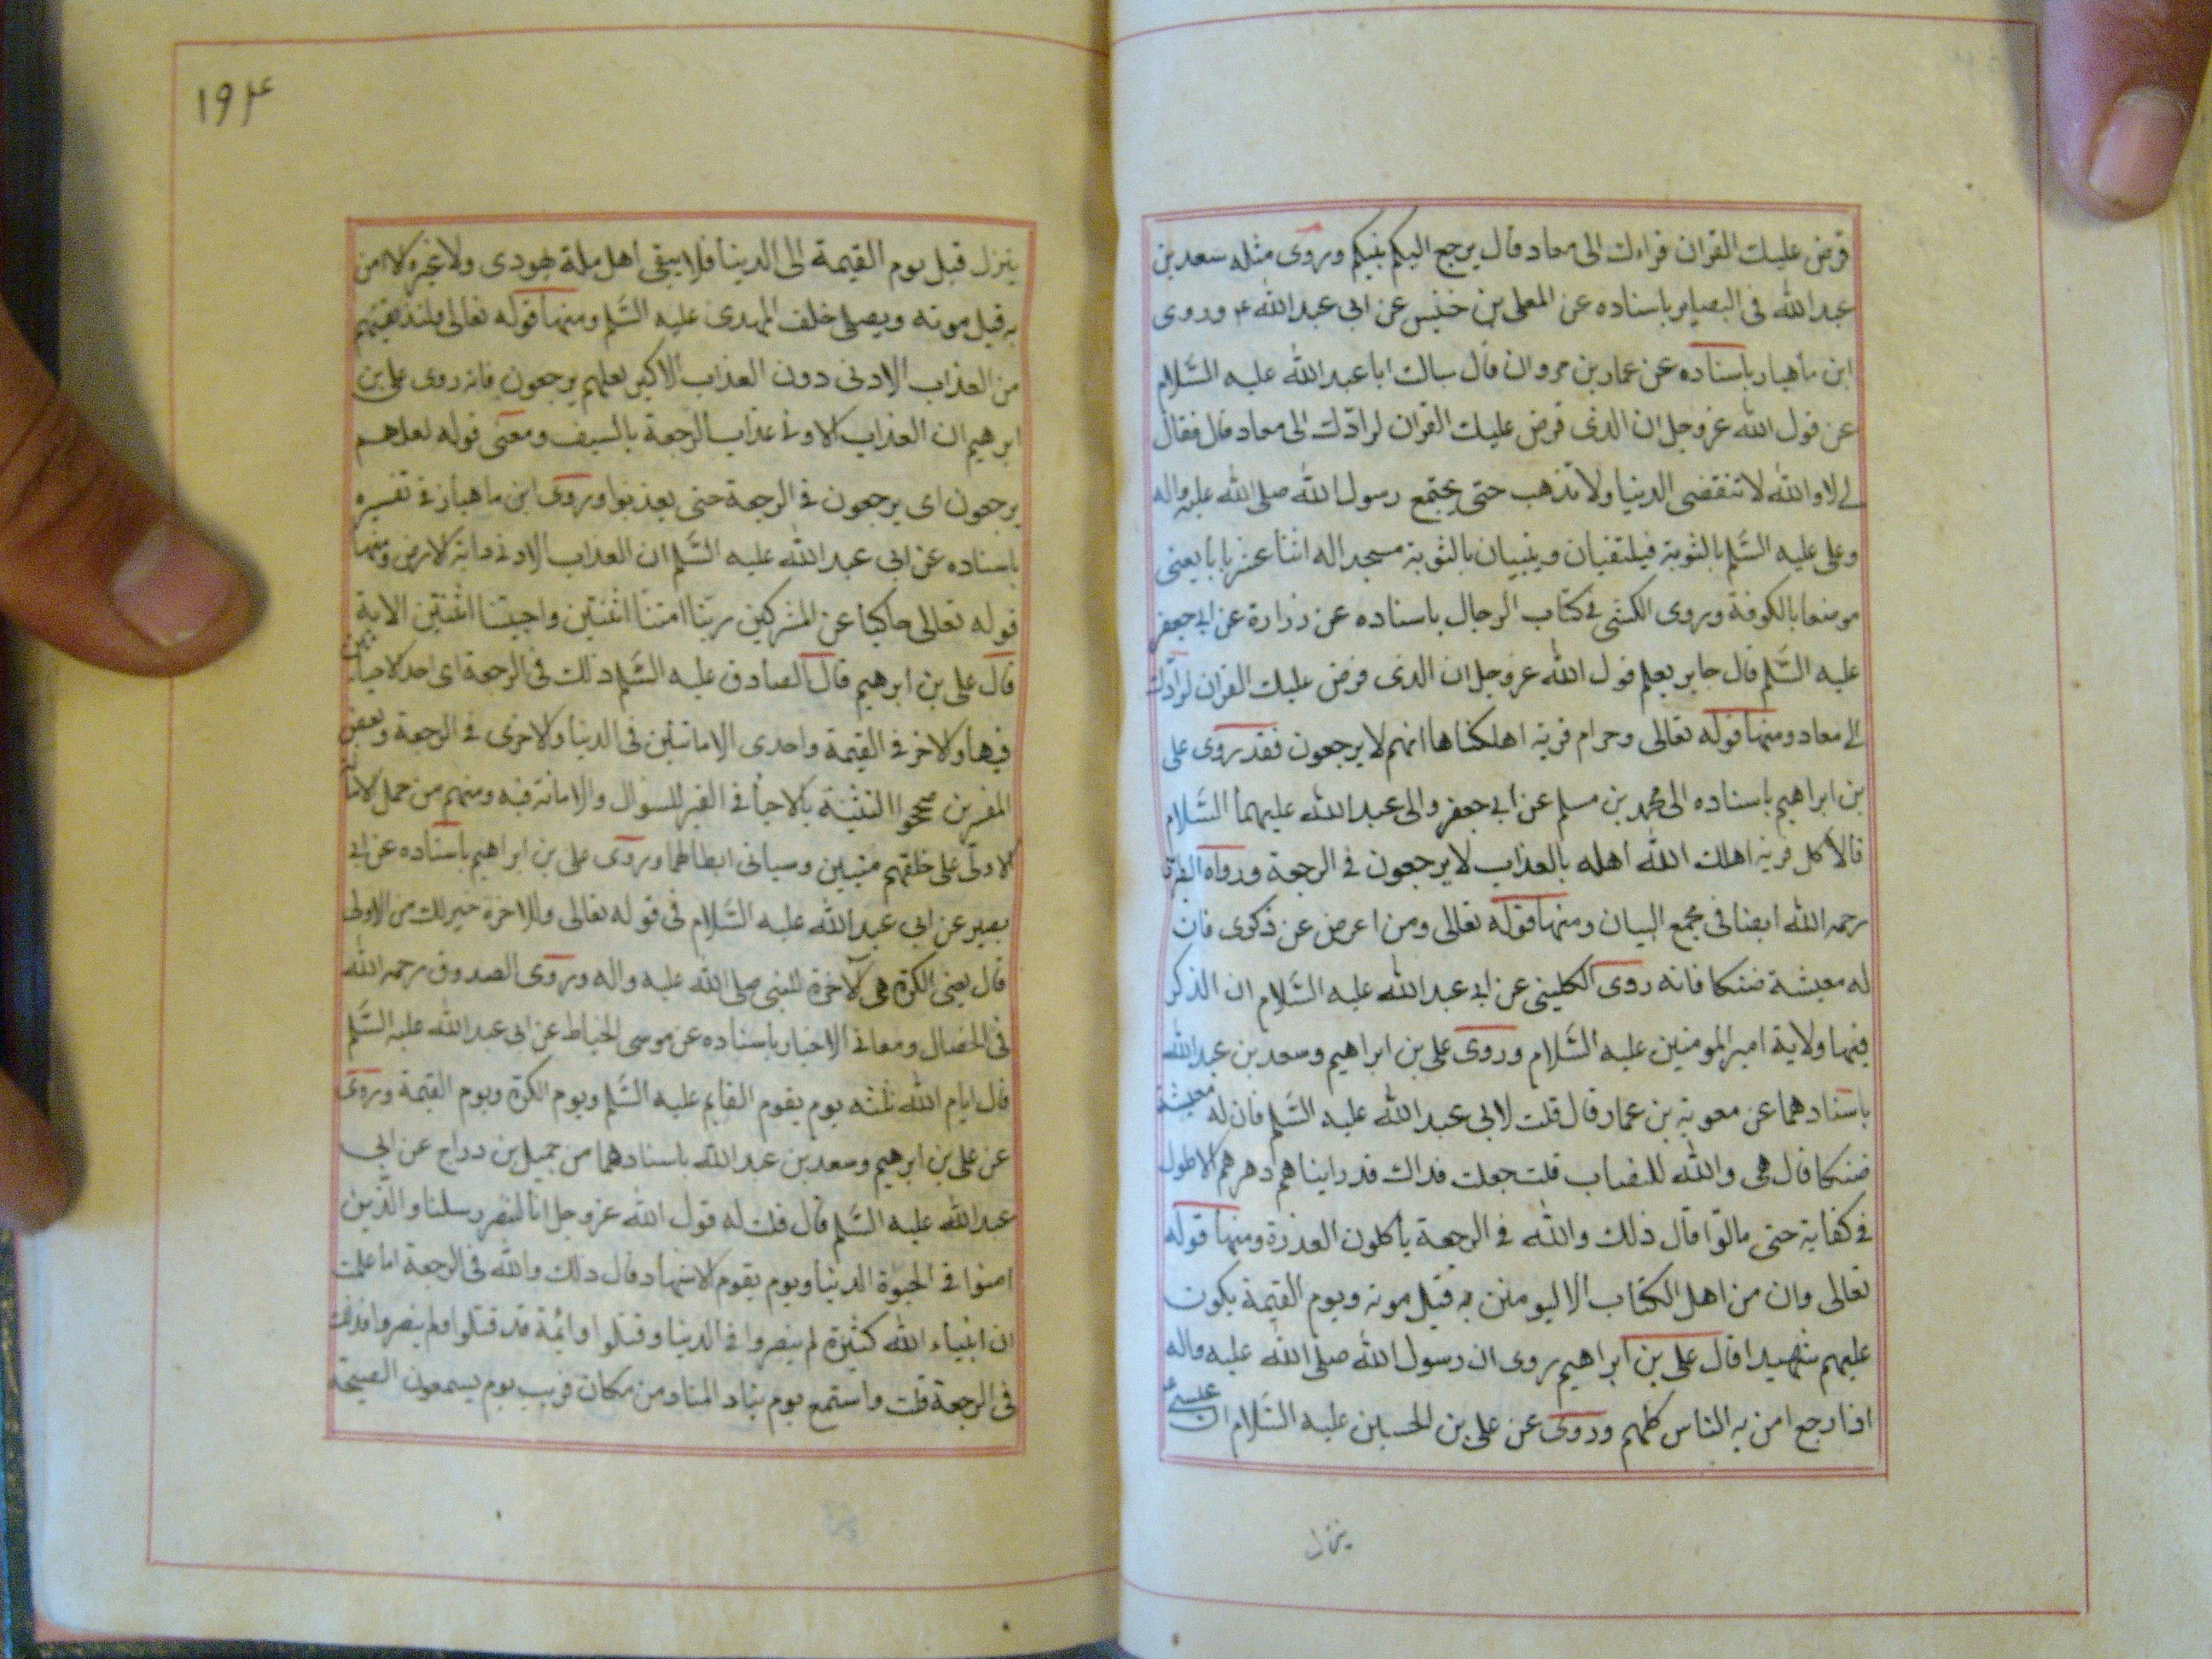 فرض عليك القران فراءك الى معاد قال يرجع اليكم نبيكم وروى مثله سعد بن
عبد الله فى البصاير باسناده عن المعلى بن خنيس عن ابى عبد الله ع وروى
ابن ماهيار باسناده عن عمار بن مروان قال سالت ابا عبد الله عليه السلام
عن قول الله عز وجل ان الذى فرض عليك القران لرادك الى معاد قال فقال
لى لا والله لا تنقضى الدنيا ولا تذهب حتى يجتمع رسول الله صلى الله عليه واله
وعلى عليه السلم بالثوية فيلتقيان ويبنيان بالثوية مسجدا له اثنا عشر بابا يعنى
موضعا بالكوفة وروى الكشى فى كتاب الرجال باسناده عن زرارة عن ابى جعفر
عليه السلم قال جابر يعلم قول الله عز وجل ان الذى فرض عليك القران لرادك
الى معاد ومنها قوله تعالى وحرام قرية اهلكناها انهم لا يرجعون فقد روى على
بن ابراهيم باسناده الى محمد بن مسلم عن ابى جعفر والى عبد الله عليهما السلام
قالا كل قرية اهلك الله اهله بالعذاب لا يرجعون فى الرجعة ورواه
رحمه الله ايضا فى مجمع البيان ومنها قوله تعالى ومن اعرض عن ذكرى فان
له معيشة ضنكا فانه روى الكلينى عن ابى عبد الله عليه السلام ان الذكر
فيها ولاية امير المومنين عليه السلام وروى على بن ابراهيم وسعد بن عبد الله
باسنادهما عن معوية بن عمار قال قلت لابى عبد الله عليه السلم فان له معيشة
ضنكا قال هى والله للنصاب قلت جعلت فداك قد رايناهم دهرهم الاطول
فى كفاية حتى ماتوا قال ذلك والله فى الرجعة ياكلون العذرة ومنها قوله
تعالى وان من اهل الكتاب الا ليومنن به قبل موته ويوم القيمة يكون
عليهم شهيدا قال على بن ابراهيم روى ان رسول الله صلى الله عليه واله
اذا رجع امن به الناس كلهم وروى عن على بن الحسين عليه السلام ان عيسى ع
ينزل
١٩۴
ينزل قبل يوم القيمة الى الدنيا فلا يبقى اهل ملة يهودى ولا غيره الا امن
به قبل موته ويصلى خلف المهدى عليه السلم ومنها قوله تعالى ولنذيقنهم
من العذاب الادنى دون العذاب الاكبر لعلهم يرجعون فانه روى على بن
ابرهيم ان العذاب الادنى عذاب الرجعة بالسيف ومعنى قوله لعلهم
يرجعون اى يرجعون فى الرجعة حتى يعذبوا وروى ابن ماهيار فى تفسيره
باسناده عن ابى عبد الله عليه السلم ان العذاب الادنى دابة الارض ومنها
قوله تعالى حاكيا عن المشركين ربنا امتنا اثنتين واحييتنا اثنتين الاية
قال على بن ابرهيم قال الصادق عليه السلم ذلك فى الرجعة اى احد الاحيائين
فيها والاخر فى القيمة واحدى الاماتتين فى الدنيا والاخرى فى الرجعة وبعض
المفسرين صححوا التثنية بالاحيا فى القبر للسوال والاماتة فيه ومنهم من حمل الاماتة
الاولى على خلقهم ميتين وسياتى ابطالهما وروى على بن ابراهيم باسناده عن ابى
بصير عن ابى عبد الله عليه السلام فى قوله تعالى وللاخرة خير لك من الاولى
قال يعنى الكرة هى الآخرة للنبى صلى الله عليه واله وروى الصدوق رحمه الله
فى الخصال ومعانى الاخبار باسناده عن موسى الخياط عن ابى عبد الله عليه السلم
قال ايام الله ثلثه يوم يقوم القايم عليه السلم ويوم الكرة ويوم القيمة وروى
عن على بن ابرهيم وسعد بن عبد الله باسنادهما من جميل بن دراج عن ابى
عبد الله عليه السلم قال قلت له قول الله عز وجل انا لننصر رسلنا والذين
امنوا فى الحيوة الدنيا ويوم يقوم الاشهاد قال ذلك والله فى الرجعة اما علمت
ان انبياء الله كثيرة لم ينصروا فى الدنيا وقتلوا وائمة قد قتلوا ولم ينصروا فذلك
فى الرجعة قلت واستمع يوم يناد المناد من مكان قريب يوم يسمعون الصيحة